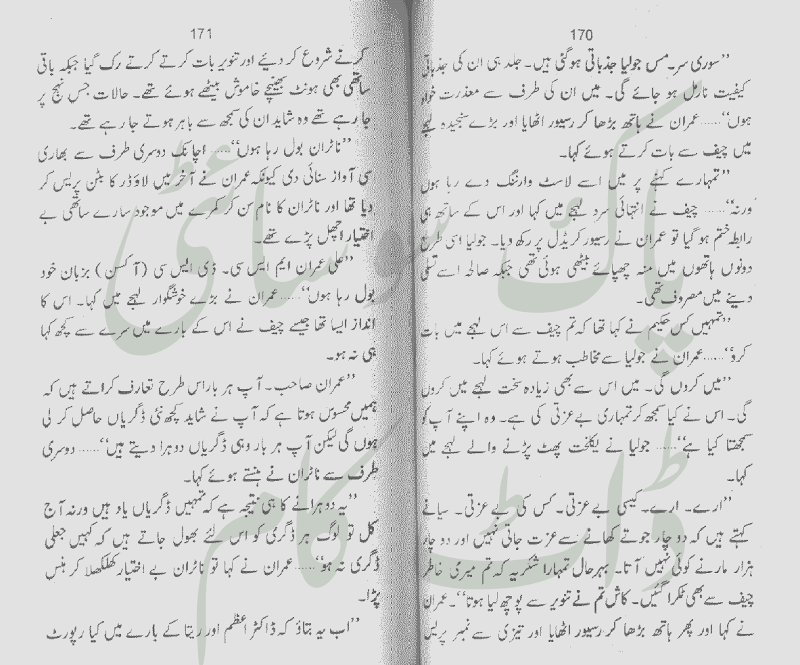 170
’’سوری سر۔ مس جولیا جذباتی ہو گئی ہیں۔ جلد ہی ان کی جذباتی
کیفیت نارمل ہو جائے گی۔ میں ان کی طرف سے معذرت خواہ
ہوں‘‘...... عمران نے ہاتھ بڑھا کر رسیور اٹھایا اور بڑے سنجیدہ لہجے
میں چیف سے بات کرتے ہوئے کہا۔
’’تمہارے کہنے پر میں اسے لاسٹ وارننگ دے رہا ہوں
ورنہ‘‘...... چیف نے انتہائی سرد لہجے میں کہا اور اس کے ساتھ ہی
رابطہ ختم ہو گیا تو عمران نے رسیور کریڈل پر رکھ دیا۔ جولیا اسی طرح
دونوں ہاتھوں میں منہ چھپائے بیٹھی ہوئی تھی جبکہ صالحہ اسے تسلی
دینے میں مصروف تھی۔
’’تمہیں کس حکیم نے کہا تھا کہ تم چیف سے اس لہجے میں بات
کرو‘‘...... عمران نے جولیا سے مخاطب ہوتے ہوئے کہا۔
’’میں کروں گی۔ میں اس سے بھی زیادہ سخت لہجے میں کروں
گی۔ اس نے کیا سمجھ کر تمہاری بے عزتی کی ہے۔ وہ اپنے آپ کو
سمجھتا کیا ہے‘‘...... جولیا نے یکلخت پھٹ پڑنے والے لہجے میں
کہا۔
’’ارے۔ ارے۔ کیسی بے عزتی۔ کس کی بے عزتی۔ سیانے
کہتے ہیں کہ دو چار جوتے کھانے سے عزت جاتی نہیں اور دو چار
ہزار مارنے کوئی نہیں آتا۔ بہرحال تمہارا شکریہ کہ تم میری خاطر
چیف سے بھی ٹکرا گئیں۔ کاش تم نے تنویر سے پوچھ لیا ہوتا‘‘۔ عمران
نے کہا اور پھر ہاتھ بڑھا کر رسیور اٹھایا اور تیزی سے نمبر پریس
171
کرنے شروع کر دیئے اور تنویر بات کرتے کرتے رک گیا جبکہ باقی
ساتھی بھی ہونٹ بھینچے خاموش بیٹھے ہوئے تھے۔ حالات جس نہج پر
جا رہے تھے وہ شاید ان کی سمجھ سے باہر ہوتے جا رہے تھے۔
’’ناٹران بول رہا ہوں‘‘...... اچانک دوسری طرف سے بھاری
سی آواز سنائی دی کیونکہ عمران نے آخر میں لاؤڈر کا بٹن پریس کر
دیا تھا اور ناٹران کا نام سن کر کمرے میں موجود سارے ساتھی بے
اختیار اچھل پڑے تھے۔
’’علی عمران ایم ایس سی۔ ڈی ایس سی (آکسن) بزبان خود
بول رہا ہوں‘‘...... عمران نے بڑے خوشگوار لہجے میں کہا۔ اس کا
انداز ایسا تھا جیسے چیف نے اس کے بارے میں سرے سے کچھ کہا
ہی نہ ہو۔
’’عمران صاحب۔ آپ ہر بار اس طرح تعارف کراتے ہیں کہ
ہمیں محسوس ہوتا ہے کہ آپ نے شاید کچھ نئی ڈگریاں حاصل کر لی
ہوں گی لیکن آپ ہر بار وہی ڈگریاں دوہرا دیتے ہیں‘‘...... دوسری
طرف سے ناٹران نے ہنستے ہوئے کہا۔
’’یہ دوہرانے کا ہی نتیجہ ہے کہ تمہیں ڈگریاں یاد ہیں ورنہ آج
کل تو لوگ ہر ڈگری کو اس لئے بھول جاتے ہیں کہ کہیں جعلی
ڈگری نہ ہو‘‘...... عمران نے کہا تو ناٹران بے اختیار کھلکھلا کر ہنس
پڑا۔
’’اب یہ بتاؤ کہ ڈاکٹر اعظم اور ریتا کے بارے میں کیا رپورٹ
پاک سوسائٹی
ڈاٹ کام